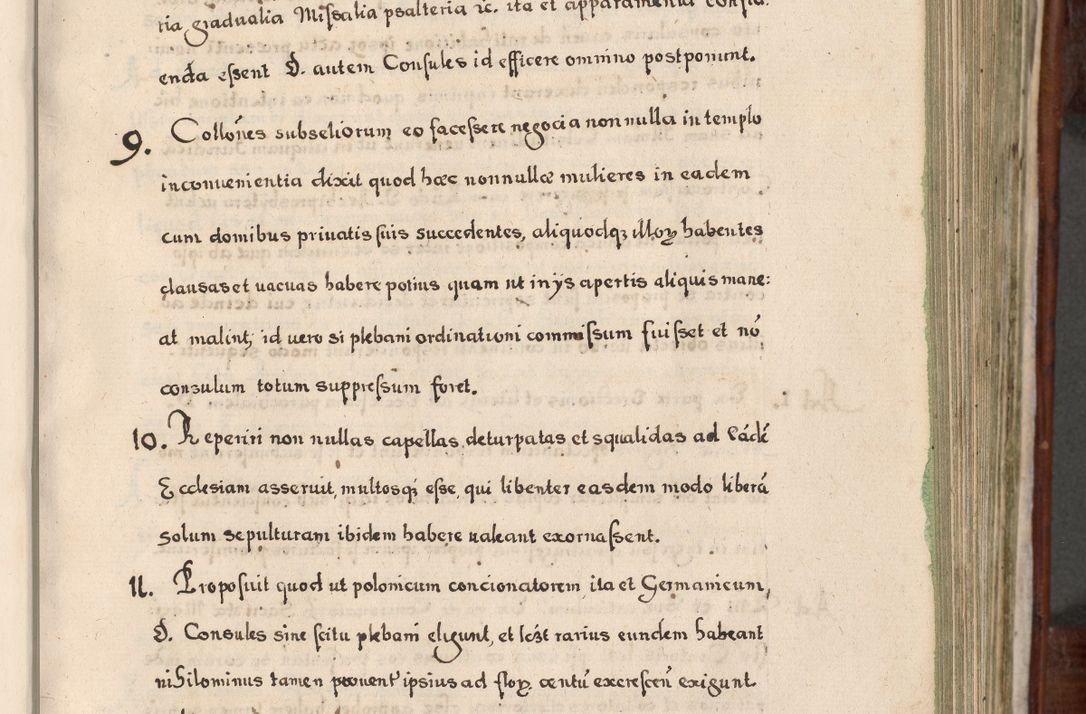 ria gradualia Missalia psalteria ꝛc. ita et apparamenta
enda essent D. autem Consules id efficere omnino postponunt.
9. Collones subseliorum eo facessere negocia nonnulla in templo
inconuenientia dixit quod hæc nonnullæ mulieres in eadem
cum domibus priuatis suis succedentes, aliquodqꝫ illoꝝ habentes
clausas et uacuas habere potius quam ut in ijs apertis aliquis mane:
at malint; id uero si plebani ordinationi commissum fuisset et nō
consulum totum suppressum foret.
10. Reperiri non nullas capellas deturpatas et squalidas ad eādē
Ecclesiam asseruit, multosqꝫ esse, qui libenter easdem modo liberā
solum sepulturam ibidem habere ualeant exornassent.
11. Proposuit quod ut polonicum concionatorem ita et Germanicum,
D. Consules sine scitu plebani eligunt, et licet rarius eundem habeant
nihilominus tamen ipsius ad floꝝ. centū excrescen exigunt.